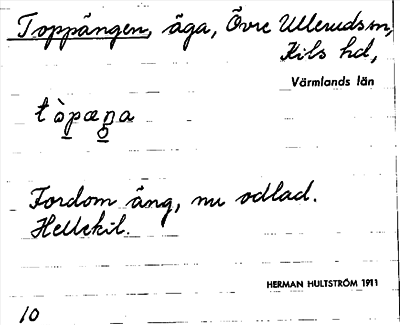 Toppängen, äga, Övre Ullerudsm,
Kils hd,
Värmlands län
Fordom äng, nu odlad.
Hellekil.
HERMAN HULTSTRÖM 1911
10